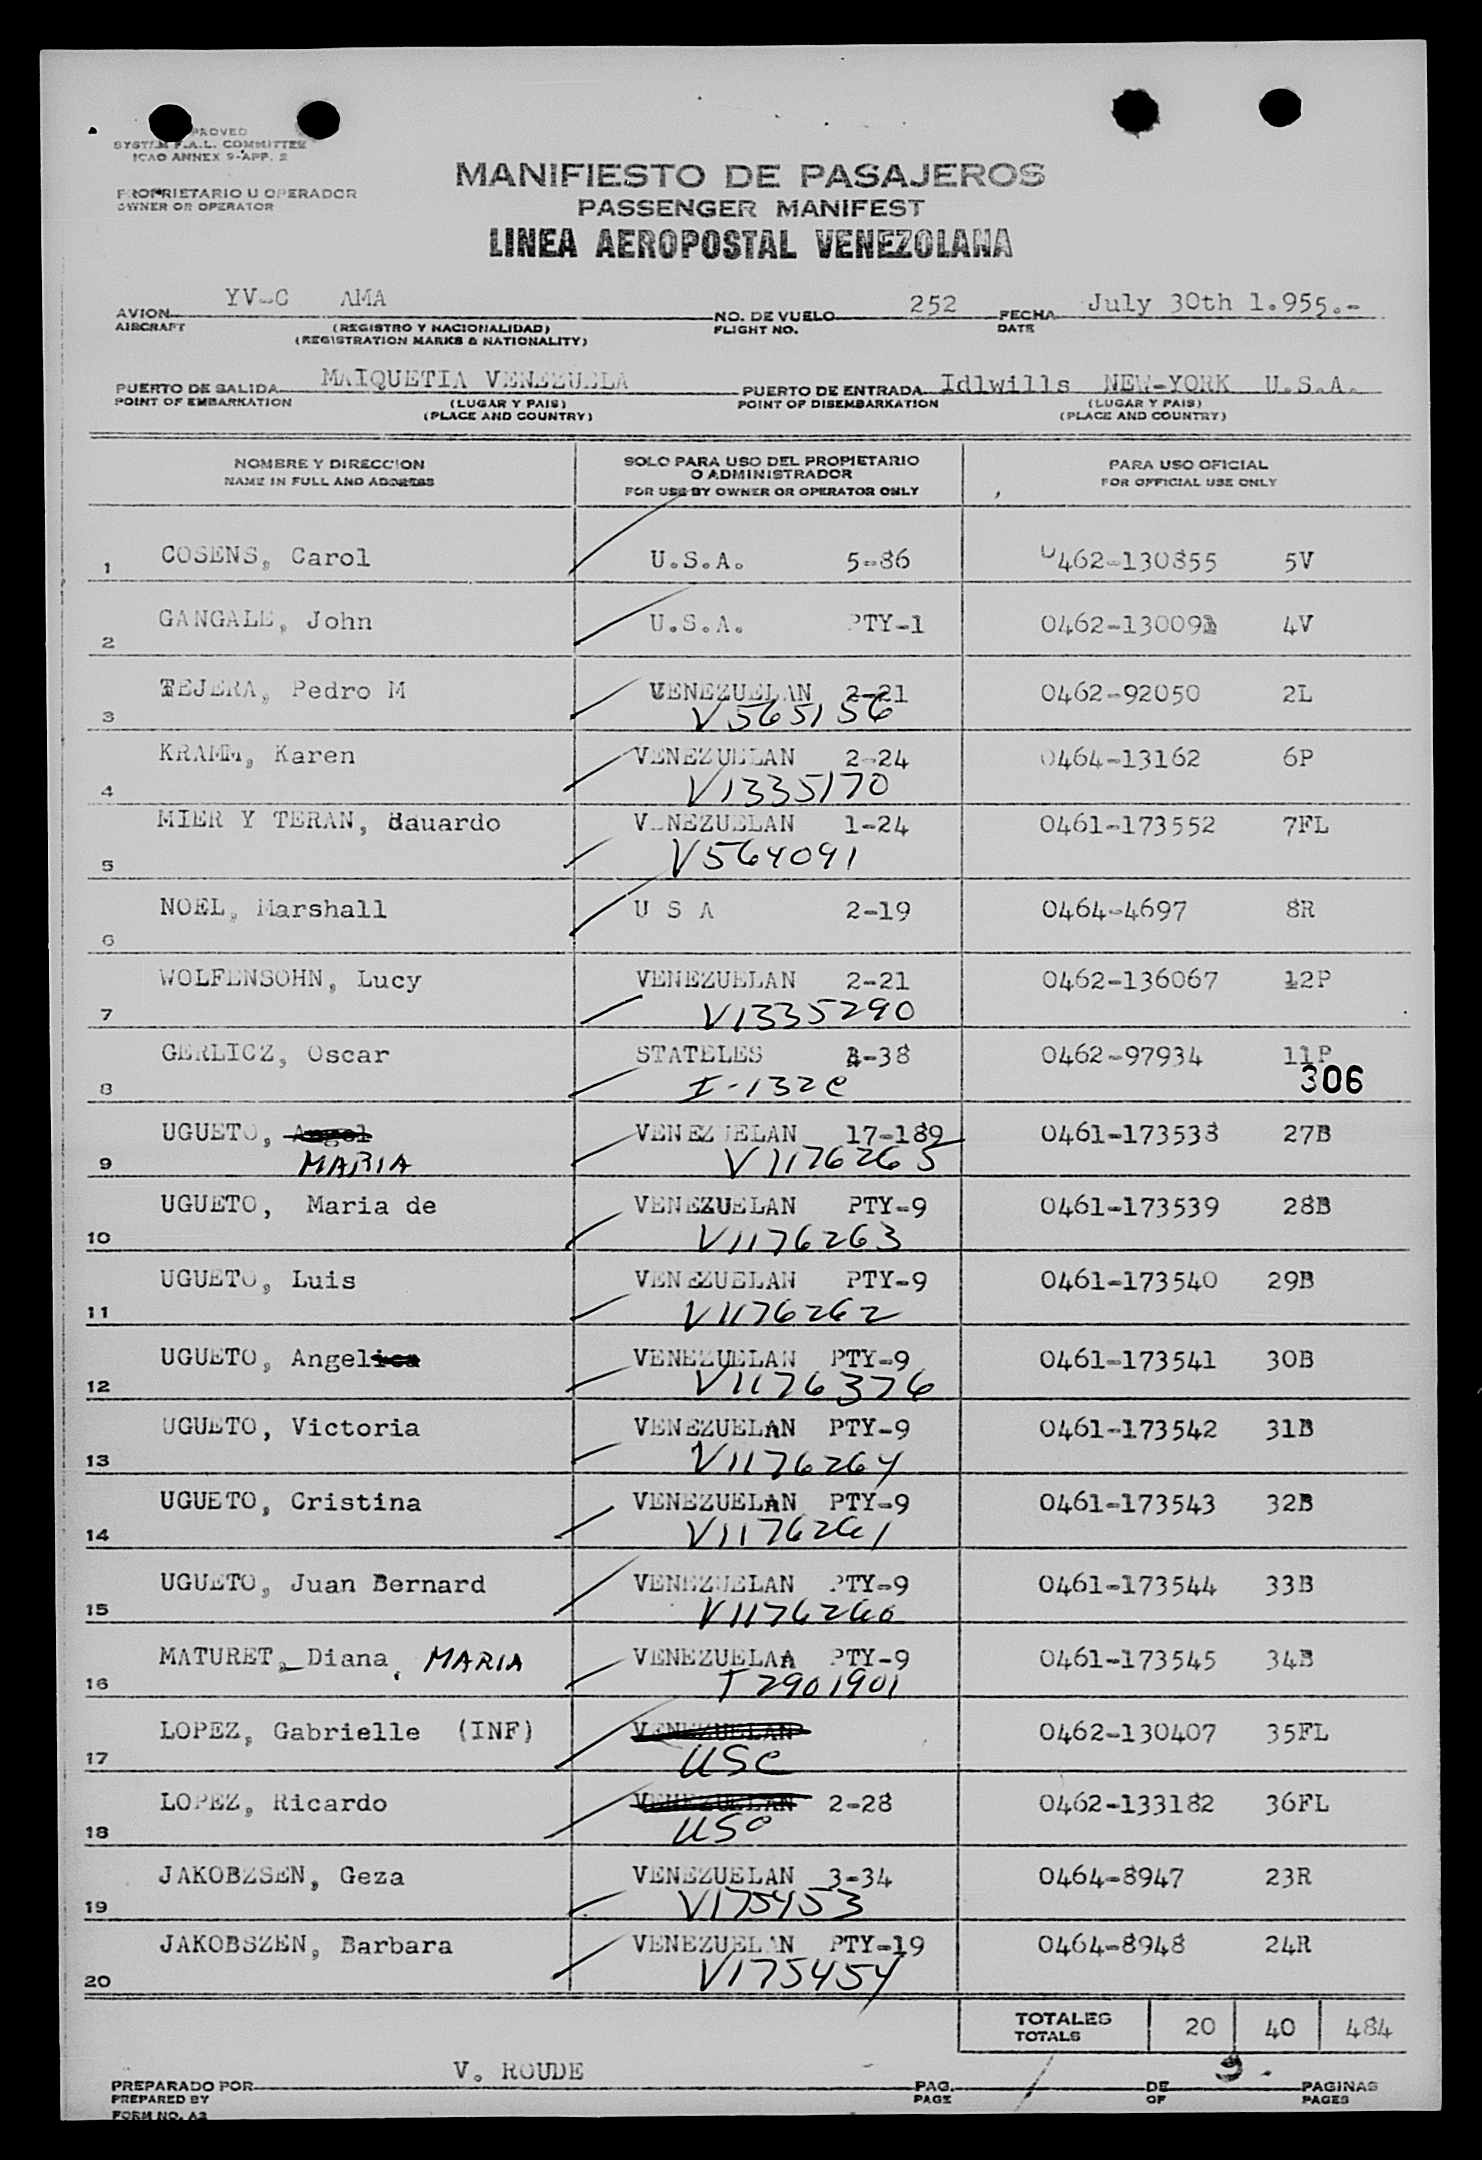 PROVED
SYSTEM F.A.L. COMMITTEE
ICAO ANNEX 9-APP. 2
PROPRIETARIO U OPERADOR
OWNER OR OPERATOR
MANIFIESTO DE PASAJEROS
PASSENGER MANIFEST
LINEA AEROPOSTAL VENEZOLANA
AVION YV-C AMA NO. DE VUELO 252 FECHA July 30th 1.955.-
AIRCRAFT (REGISTRO Y NACIONALIDAD) FLIGHT NO. DATE
(REGISTRATION MARKS & NATIONALITY)
PUERTO DE SALIDA MAIQUETIA VENEZUELA PUERTO DE ENTRADA Idlwills NEW-YORK U.S.A.
POINT OF EMBARKATION (LUGAR Y PAIS) POINT OF DISEMBARKATION (LUGAR Y PAIS)
(PLACE AND COUNTRY) (PLACE AND COUNTRY)
NOMBRE Y DIRECCION SOLO PARA USO DEL PROPIETARIO PARA USO OFICIAL
NAME IN FULL AND ADDRESS O ADMINISTRADOR FOR OFFICIAL USE ONLY
FOR USE BY OWNER OR OPERATOR ONLY
1 COSENS, Carol U.S.A. 5-86 0462-130855 5V
2 GANGALE, John U.S.A. PTY-1 0462-13009 4V
3 TEJERA, Pedro M VENEZUELAN 2-21 0462-92050 2L
V565156
4 KRAMM, Karen VENEZUELAN 2-24 0464-13162 6P
V1335170
5 MIER Y TERAN, dauardo VENEZUELAN 1-24 0461-173552 7FL
V564091
6 NOEL, Marshall U S A 2-19 0464-4697 8R
7 WOLFENSOHN, Lucy VENEZUELAN 2-21 0462-136067 12P
V1335290
8 GERLICZ, Oscar STATELES 3-38 0462-97934 11P
I-132e 306
9 UGUETO, Angel VENEZUELAN 17-189 0461-173538 27B
MARIA V1176265
10 UGUETO, Maria de VENEZUELAN PTY-9 0461-173539 28B
V1176263
11 UGUETO, Luis VENEZUELAN PTY-9 0461-173540 29B
V1176262
12 UGUETO, Angelica VENEZUELAN PTY-9 0461-173541 30B
V1176376
13 UGUETO, Victoria VENEZUELAN PTY-9 0461-173542 31B
V1176264
14 UGUETO, Cristina VENEZUELAN PTY-9 0461-173543 32B
V1176261
15 UGUETO, Juan Bernard VENEZUELAN PTY-9 0461-173544 33B
V1176260
16 MATURET, Diana, MARIA VENEZUELAA PTY-9 0461-173545 34B
T2901901
17 LOPEZ, Gabrielle (INF) VENEZUELAN 0462-130407 35FL
USC
18 LOPEZ, Ricardo VENEZUELAN 2-28 0462-133182 36FL
USC
19 JAKOBZSEN, Geza VENEZUELAN 3-34 0464-8947 23R
V175453
20 JAKOBSZEN, Barbara VENEZUELAN PTY-19 0464-8948 24R
V175454
TOTALES 20 40 484
TOTALS
PREPARADO POR V. ROUDE PAG. 1 DE 3 PAGINAS
PREPARED BY PAGE OF PAGES
FORM NO. A2